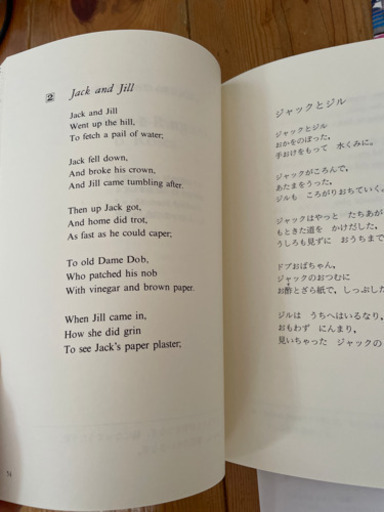 2 Jack and Jill
Jack and Jill
Went up the hill,
To fetch a pail of water;
Jack fell down,
And broke his crown,
And Jill came tumbling after.
Then up Jack got,
And home did trot,
As fast as he could caper;
To old Dame Dob,
Who patched his nob
With vinegar and brown paper.
When Jill came in,
How she did grin
To see Jack's paper plaster;
54
ジャックとジル
ジャックとジル
おかをのぼった,
手おけをもって 水くみに。
ジャックがころんで,
あたまをうった,
ジルも ころがりおちていく。
ジャックはやっと たちあが
もときた道を かけだした,
うしろも見ずに おうちまで
ドブおばちゃん,
ジャックのおつむに
お酢とざら紙で, しっぷした
ジルは うちへはいるなり,
おもわず にんまり,
見いちゃった ジャックの